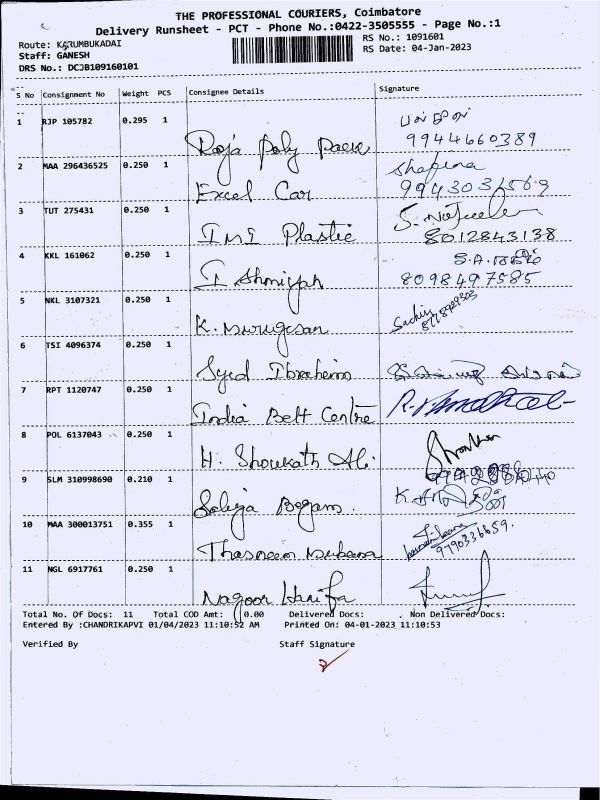 THE PROFESSIONAL COURIERS, Coimbatore
Delivery Runsheet - PCT - Phone No.:0422-3505555 - Page No.:1
Route: KARUMBUKADAI
RS No.: 1091601
Staff: GANESH
RS Date: 04-Jan-2023
DRS No.: DCJB109160101
S No Consignment No Weight PCS Consignee Details Signature
1 RJP 105782 0.295 1
Roja Poly Pack 9944660389
2 MAA 296436525 0.250 1
Excel Car
3 TUT 275431 0.250 1
IMI Plastic 8012843138
4 KKL 161062 0.250 1
8098497585
5 NKL 3107321 0.250 1
K. Murugesan
6 TSI 4096374 0.250 1
Syed Ibrahim
7 RPT 1120747 0.250 1
India Belt Centre
8 POL 6137043 0.250 1
H. Shoukath Ali
9 SLM 310998690 0.210 1
Begam
10 MAA 300013751 0.355 1
Thasneem Mubeena 9790336659.
11 NGL 6917761 0.250 1
Nagoor Hanifa
Total No. Of Docs: 11 Total COD Amt: 0.00 Delivered Docs: Non Delivered Docs:
Entered By :CHANDRIKAPVI 01/04/2023 11:10:52 AM Printed On: 04-01-2023 11:10:53
Verified By Staff Signature